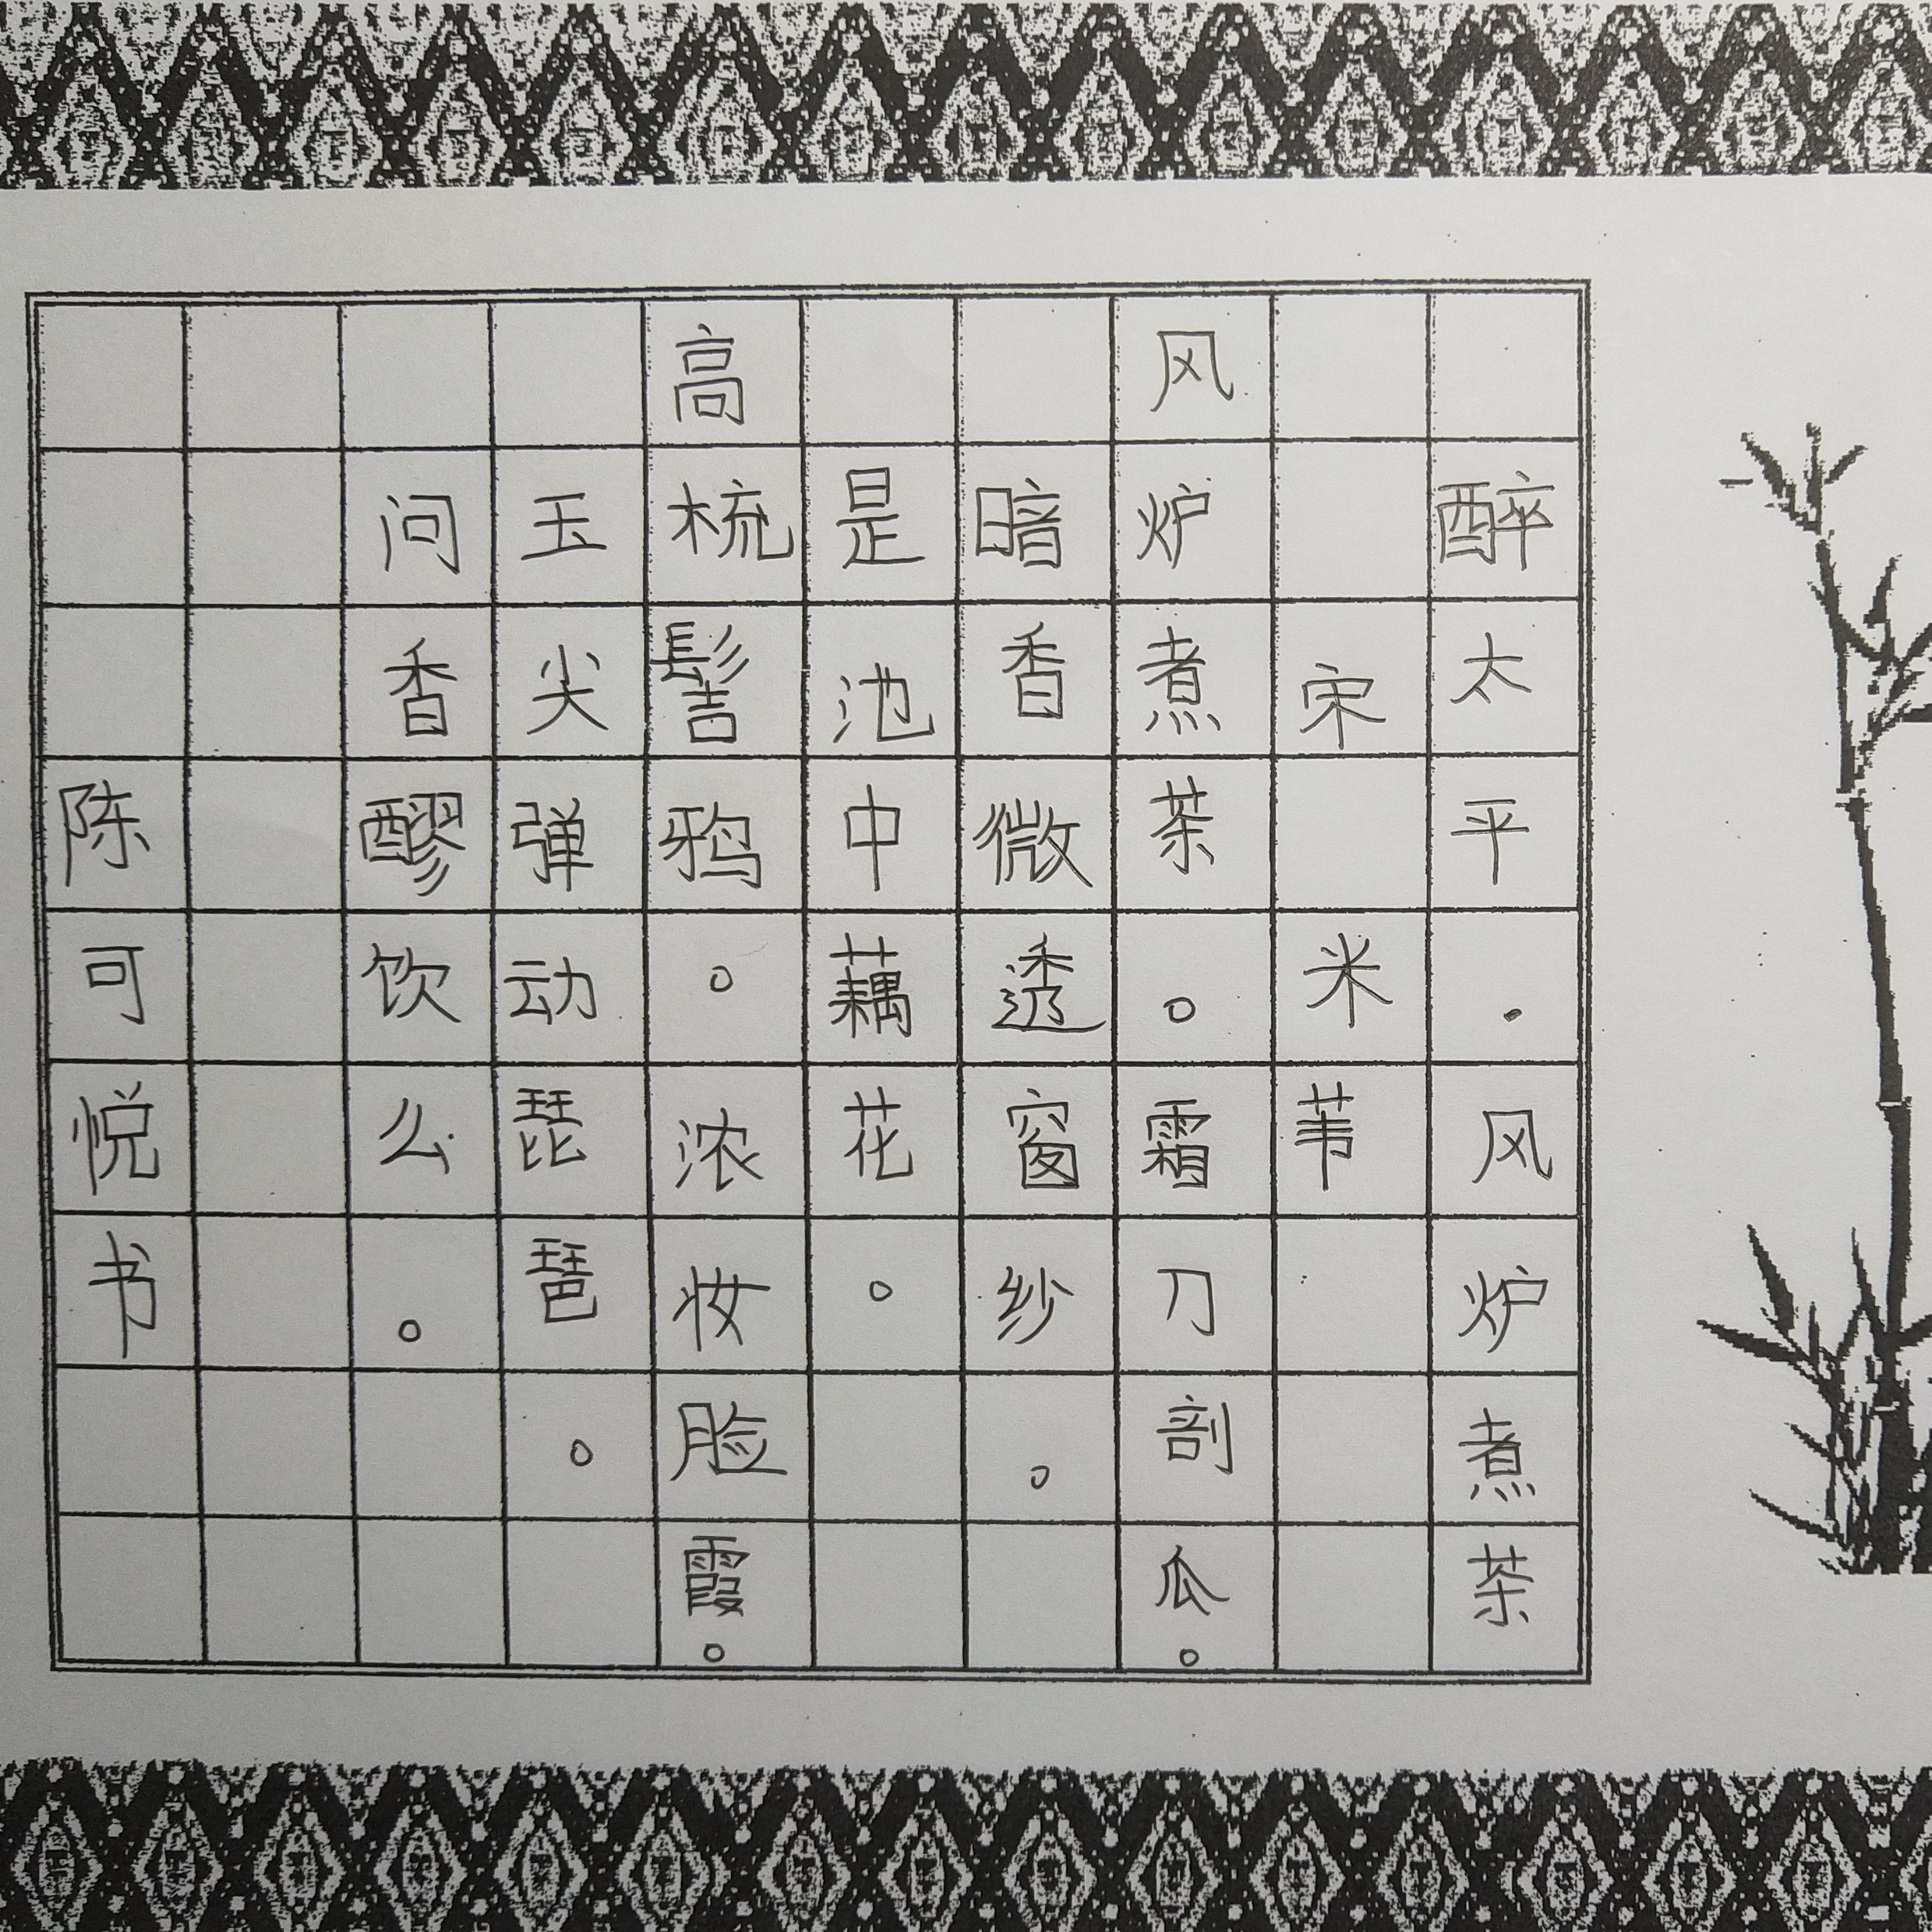 醉太平.风炉煮茶
宋米芾
风炉煮茶。霜刀剖瓜。
暗香微透窗纱。
是池中藕花。
高梳髻鸦。浓妆脸霞。
玉尖弹动琵琶。
问香醪饮么。
陈可悦书